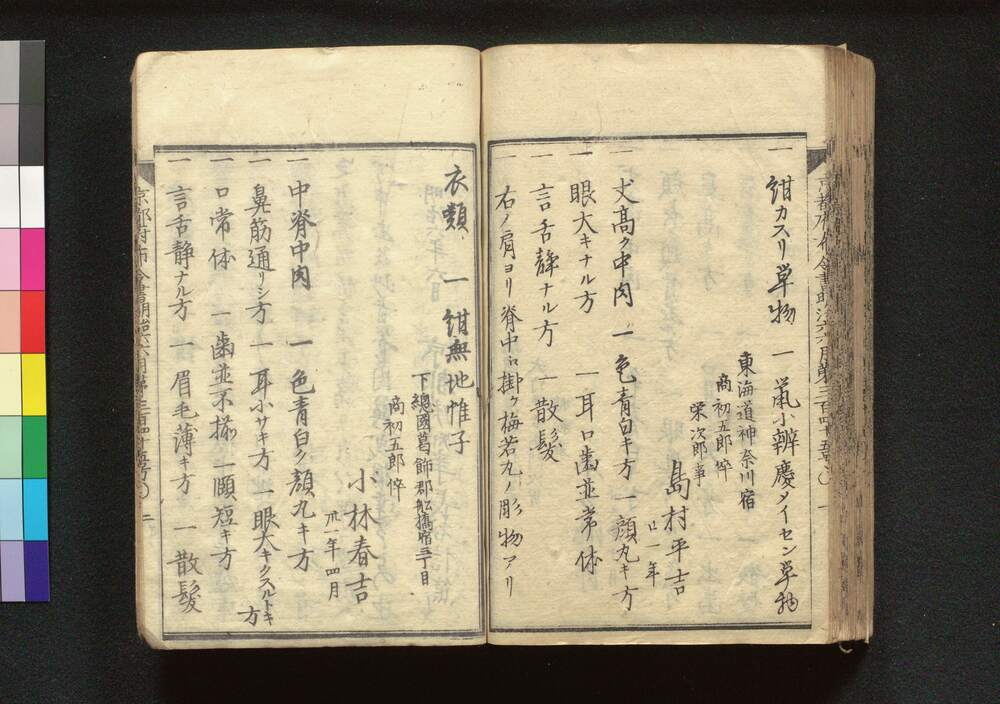 一 紺カスリ単物 一 鼠小辨慶メイセン単物
東海道神奈川宿
商初五郎倅
栄次郎事
島村平吉
廿一年
一 丈高ク中肉 一 色青白キ方 一 顔丸キ方
一 眼大キナル方 一 耳口歯並常体
一 言舌静ナル方 一 散髪
一 右ノ肩ヨリ脊中ニ掛ケ梅若丸ノ彫物アリ
衣類 一 紺無地帷子
下総國葛飾郡舩橋宿三丁目
商初五郎倅
小林春吉
卅一年四月
一 中脊中肉 一 色青白ク顔丸キ方
一 鼻筋通リシ方 一 耳小サキ方 一 眼大キクスルトキ方
一 口常体 一 歯並不揃 一 頤短キ方
一 言舌静ナル方 一 眉毛薄キ方 一 散髪